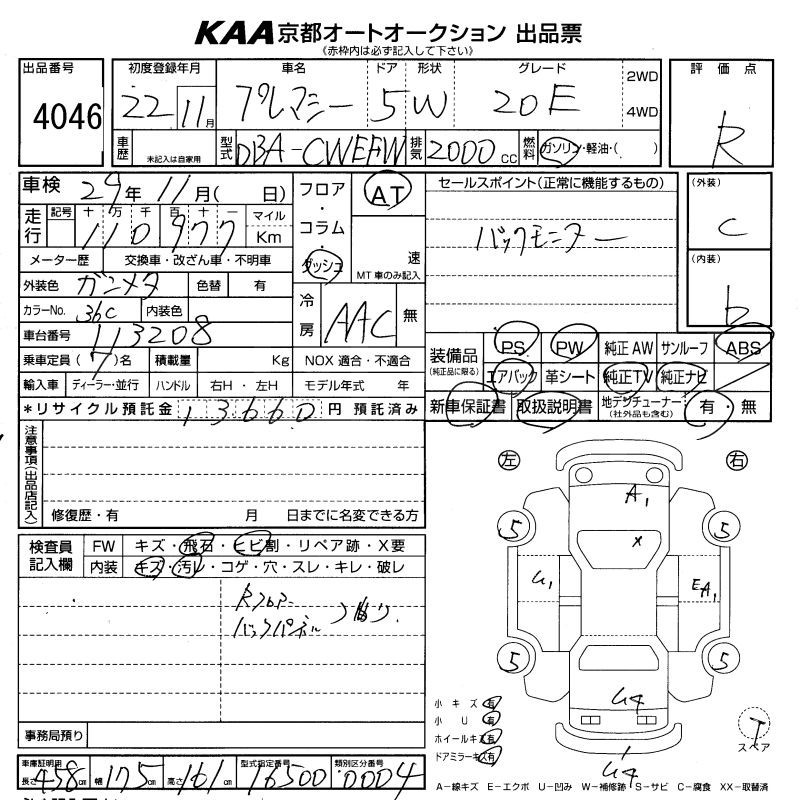 KAA京都オートオークション 出品票
(赤枠内は必ず記入して下さい)
出品番号 4046
初度登録年月 22 11月
車名 プレマシー
ドア 5
形状 W
グレード 20E
2WD
4WD
評価点 R
車歴 未記入は自家用
型式 DBA-CWEFW
排気 2000cc
燃料 ガソリン・軽油・( )
車検 29年11月( 日)
走行 記号 十 万 千 百 十 一 マイル
110977 Km
メーター歴 交換車・改ざん車・不明車
外装色 ガンメタ 色替 有
カラーNo. 36C 内装色
車台番号 113208
乗車定員 (7)名 積載量 Kg NOX 適合・不適合
輸入車 ディーラー・並行 ハンドル 右H・左H モデル年式 年
*リサイクル預託金 13660円 預託済み
フロア・コラム・ダッシュ
AT
速
MT車のみ記入
冷房 AAC 無
セールスポイント(正常に機能するもの)
バックモニター
(外装) C
(内装) b
装備品 (純正品に限る)
PS PW 純正AW サンルーフ ABS
エアバック 革シート 純正TV 純正ナビ
新車保証書 取扱説明書 地デジチューナー (社外品も含む) 有・無
注意事項(出品店記入)
修復歴・有 月 日までに名変できる方
検査員記入欄
FW キズ・飛石・ヒビ割・リペア跡・X要
内装 キズ・汚レ・コゲ・穴・スレ・キレ・破レ
Rフロアー
バックパネル 曲り
事務局預り
車庫証明用 長さ 458cm 幅 175cm 高さ 161cm
型式指定番号 16500
類別区分番号 0004
左 右
A1
X
5 5
U1 EA1
5 5
U4
U4
小キズ 有
小U 有
ホイールキズ 有
ドアミラーキズ 有
T
スペア
A－線キズ E－エクボ U－凹み W－補修跡 S－サビ C－腐食 XX－取替済